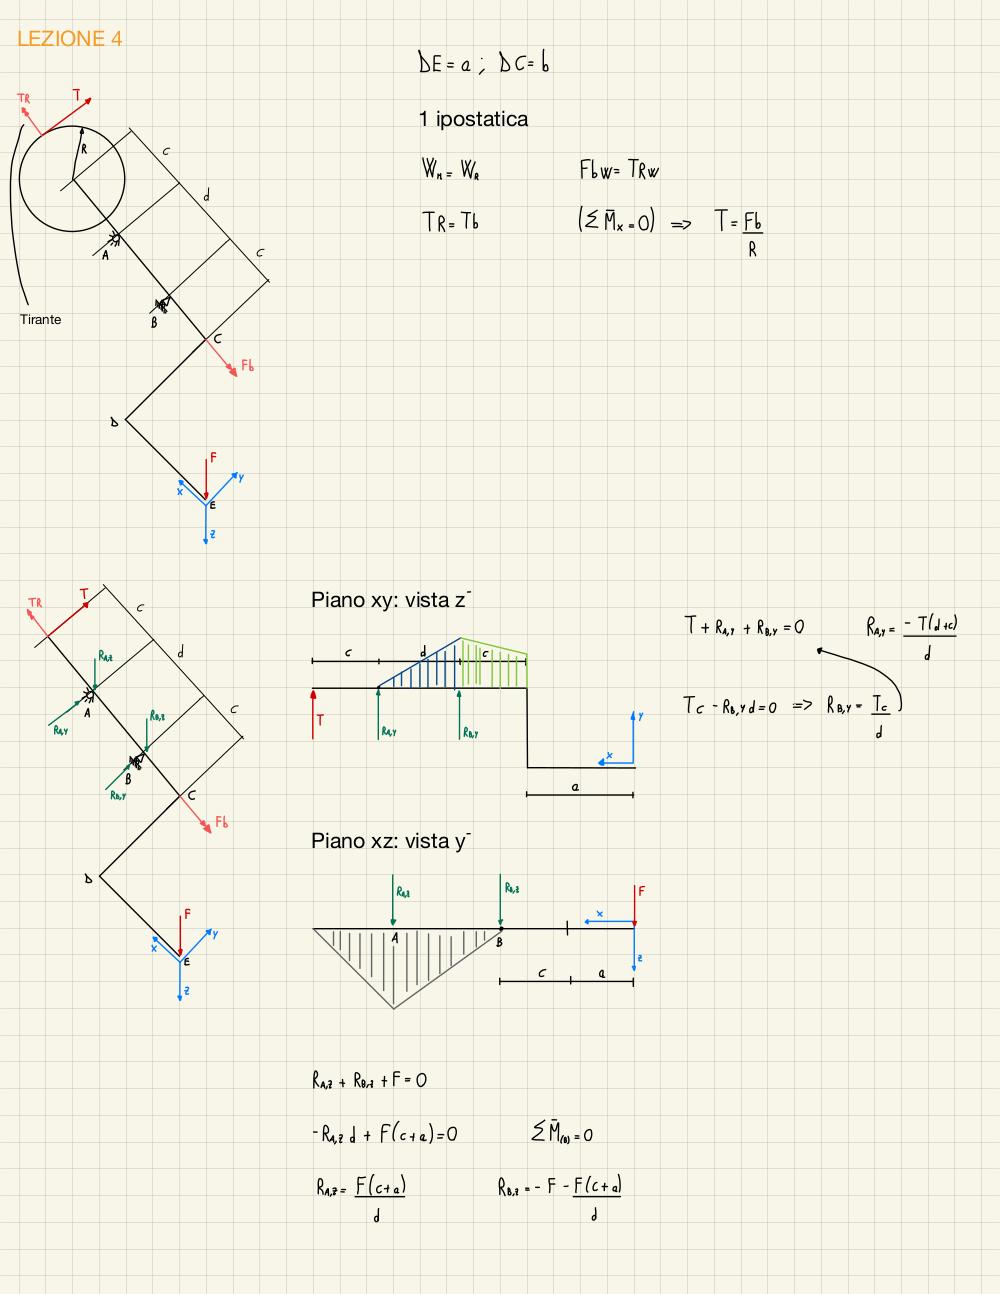 LEZIONE 4
DE = a ; DC = b
1 ipostatica
W_M = W_R
FbW = TRW
TR = Tb
(ΣM̄_x = 0) ⇒ T = Fb/R
TR
T
R
c
d
c
A
B
Tirante
C
Fb
D
F
x
y
E
z
TR
T
c
d
c
R_A,z
R_A,y
A
R_B,z
B
R_B,y
C
Fb
D
F
x
y
E
z
Piano xy: vista z⁻
c d c
T
R_A,y
R_B,y
y
x
a
T + R_A,y + R_B,y = 0
R_A,y = -T(d+c)/d
Tc - R_B,y d = 0 ⇒ R_B,y = Tc/d
Piano xz: vista y⁻
R_A,z
R_B,z
F
x
A
B
z
c a
R_A,z + R_B,z + F = 0
-R_A,z d + F(c+a) = 0
ΣM̄_(B) = 0
R_A,z = F(c+a)/d
R_B,z = -F - F(c+a)/d